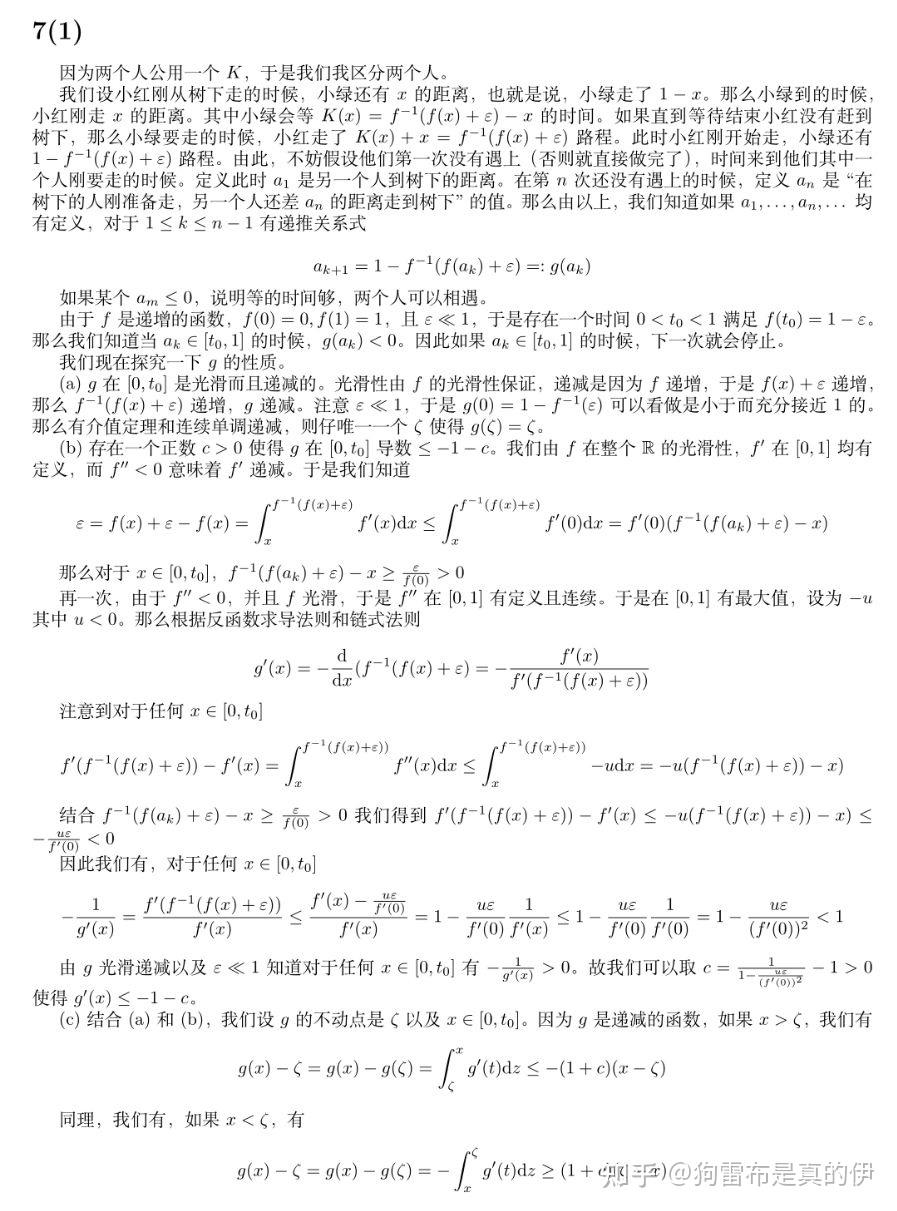 7(1)
因为两个人公用一个 K，于是我们我区分两个人。
我们设小红刚从树下走的时候，小绿还有 x 的距离，也就是说，小绿走了 1 − x。那么小绿到的时候，
小红刚走 x 的距离。其中小绿会等 K(x) = f⁻¹(f(x) + ε) − x 的时间。如果直到等待结束小红没有赶到
树下，那么小绿要走的时候，小红走了 K(x) + x = f⁻¹(f(x) + ε) 路程。此时小红刚开始走，小绿还有
1 − f⁻¹(f(x) + ε) 路程。由此，不妨假设他们第一次没有遇上（否则就直接做完了），时间来到他们其中一
个人刚要走的时候。定义此时 a₁ 是另一个人到树下的距离。在第 n 次还没有遇上的时候，定义 aₙ 是 “在
树下的人刚准备走，另一个人还差 aₙ 的距离走到树下” 的值。那么由以上，我们知道如果 a₁, . . . , aₙ, . . . 均
有定义，对于 1 ≤ k ≤ n − 1 有递推关系式
aₖ₊₁ = 1 − f⁻¹(f(aₖ) + ε) =: g(aₖ)
如果某个 aₘ ≤ 0，说明等的时间够，两个人可以相遇。
由于 f 是递增的函数，f(0) = 0, f(1) = 1，且 ε ≪ 1，于是存在一个时间 0 < t₀ < 1 满足 f(t₀) = 1 − ε。
那么我们知道当 aₖ ∈ [t₀, 1] 的时候，g(aₖ) < 0。因此如果 aₖ ∈ [t₀, 1] 的时候，下一次就会停止。
我们现在探究一下 g 的性质。
(a) g 在 [0, t₀] 是光滑而且递减的。光滑性由 f 的光滑性保证，递减是因为 f 递增，于是 f(x) + ε 递增，
那么 f⁻¹(f(x) + ε) 递增，g 递减。注意 ε ≪ 1，于是 g(0) = 1 − f⁻¹(ε) 可以看做是小于而充分接近 1 的。
那么有介值定理和连续单调递减，则仔唯一一个 ζ 使得 g(ζ) = ζ。
(b) 存在一个正数 c > 0 使得 g 在 [0, t₀] 导数 ≤ −1 − c。我们由 f 在整个 ℝ 的光滑性，f′ 在 [0, 1] 均有
定义，而 f″ < 0 意味着 f′ 递减。于是我们知道
ε = f(x) + ε − f(x) = ∫ₓ^{f⁻¹(f(x)+ε)} f′(x)dx ≤ ∫ₓ^{f⁻¹(f(x)+ε)} f′(0)dx = f′(0)(f⁻¹(f(aₖ) + ε) − x)
那么对于 x ∈ [0, t₀]，f⁻¹(f(aₖ) + ε) − x ≥ ε/f(0) > 0
再一次，由于 f″ < 0，并且 f 光滑，于是 f″ 在 [0, 1] 有定义且连续。于是在 [0, 1] 有最大值，设为 −u
其中 u < 0。那么根据反函数求导法则和链式法则
g′(x) = −d/dx (f⁻¹(f(x) + ε) = −f′(x)/f′(f⁻¹(f(x) + ε))
注意到对于任何 x ∈ [0, t₀]
f′(f⁻¹(f(x) + ε)) − f′(x) = ∫ₓ^{f⁻¹(f(x)+ε))} f″(x)dx ≤ ∫ₓ^{f⁻¹(f(x)+ε))} −udx = −u(f⁻¹(f(x) + ε)) − x)
结合 f⁻¹(f(aₖ) + ε) − x ≥ ε/f(0) > 0 我们得到 f′(f⁻¹(f(x) + ε)) − f′(x) ≤ −u(f⁻¹(f(x) + ε)) − x) ≤
−uε/f′(0) < 0
因此我们有，对于任何 x ∈ [0, t₀]
−1/g′(x) = f′(f⁻¹(f(x) + ε))/f′(x) ≤ (f′(x) − uε/f′(0))/f′(x) = 1 − uε/f′(0) 1/f′(x) ≤ 1 − uε/f′(0) 1/f′(0) = 1 − uε/(f′(0))² < 1
由 g 光滑递减以及 ε ≪ 1 知道对于任何 x ∈ [0, t₀] 有 −1/g′(x) > 0。故我们可以取 c = 1/(1−uε/(f′(0))²) − 1 > 0
使得 g′(x) ≤ −1 − c。
(c) 结合 (a) 和 (b)，我们设 g 的不动点是 ζ 以及 x ∈ [0, t₀]。因为 g 是递减的函数，如果 x > ζ，我们有
g(x) − ζ = g(x) − g(ζ) = ∫_ζ^x g′(t)dz ≤ −(1 + c)(x − ζ)
同理，我们有，如果 x < ζ，有
g(x) − ζ = g(x) − g(ζ) = −∫ₓ^ζ g′(t)dz ≥ (1 +
知乎 @狗雷布是真的伊